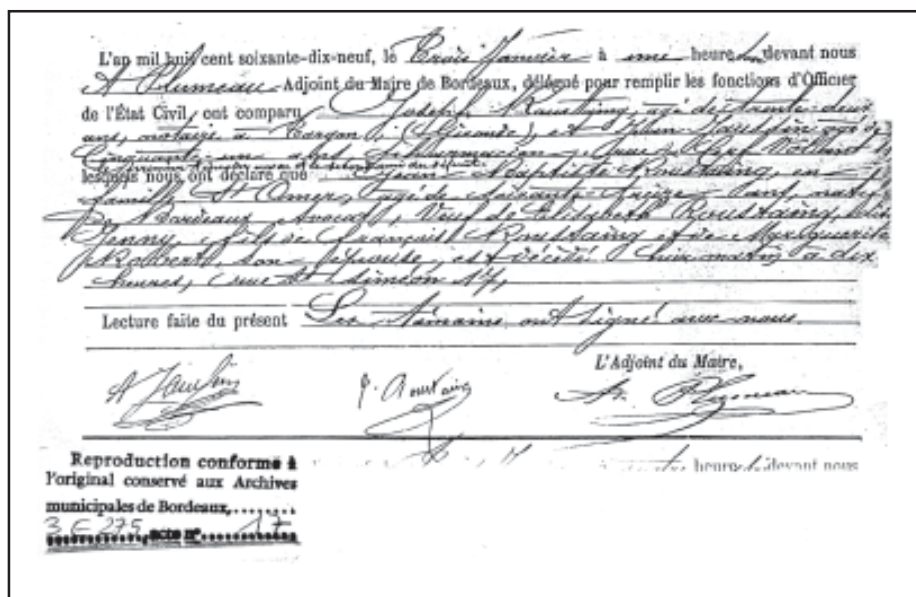 L'an mil huit cent soixante-dix-neuf, le Trois Janvier à une heure devant nous
A Plumeau Adjoint du Maire de Bordeaux, délégué pour remplir les fonctions d'Officier
de l'État Civil, ont comparu Joseph Roustaing, agé de trente deux
ans, notaire à (Gironde), et Jaussin agé de
Cinquante un ans, pharmacien, rue
lesquels nous ont déclaré que Jean Baptiste Roustaing, en
famille St Omer, agé de soixante treize ans, natif
De Bordeaux, Avocat, Veuf de Elisabeth Roustaing, dite
Jenny, fils de François Roustaing et de Marguerite
Robert son épouse, est décédé hier matin à dix
heures, rue St Siméon 17,
Lecture faite du présent Les témoins ont signé avec nous.
L'Adjoint du Maire,
A Jaussin J. Roustaing A. Plumeau
Reproduction conforme à
l'original conservé aux Archives
municipales de Bordeaux,.......
3 E 275, acte n° 17
heure devant nous